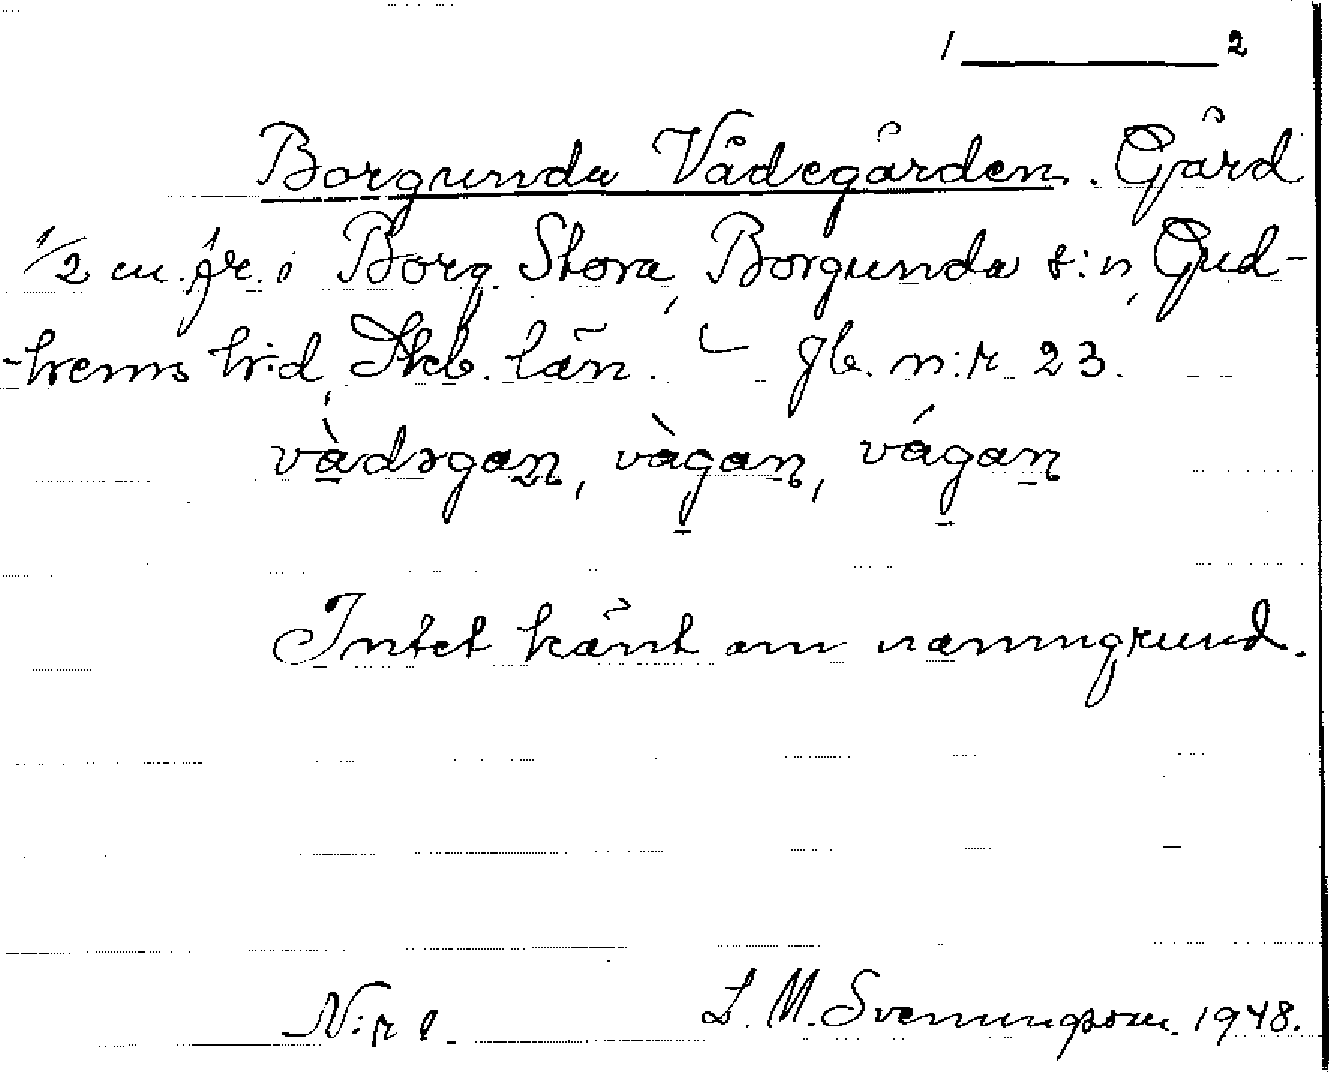 1 ――― 2
Borgunda Vådegården. Gård
1/2 m. fr. i Borg. Stora, Borgunda s:n, Gud-
-hems h:d, Skb. län. gb. n:r 23.
vàdəgan, vàgan, vágan
Intet känt om namngrund.
N:r 1. L. M. Svenungsson. 1948.